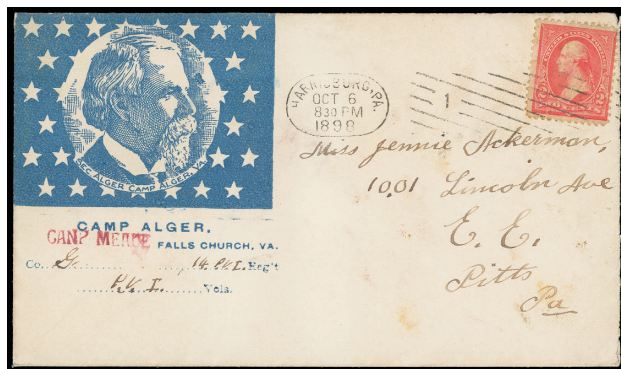 SEC. ALGER CAMP ALGER, VA.
CAMP ALGER,
CANP MEADE
FALLS CHURCH, VA.
Co. G. 14. P.V.I. Reg't
P.V.I. Vols.
HARRISBURG, PA.
OCT 6
830 PM
1898
1
Miss Jennie Ackerman,
1001 Lincoln Ave
E. E.
Pitts
Pa